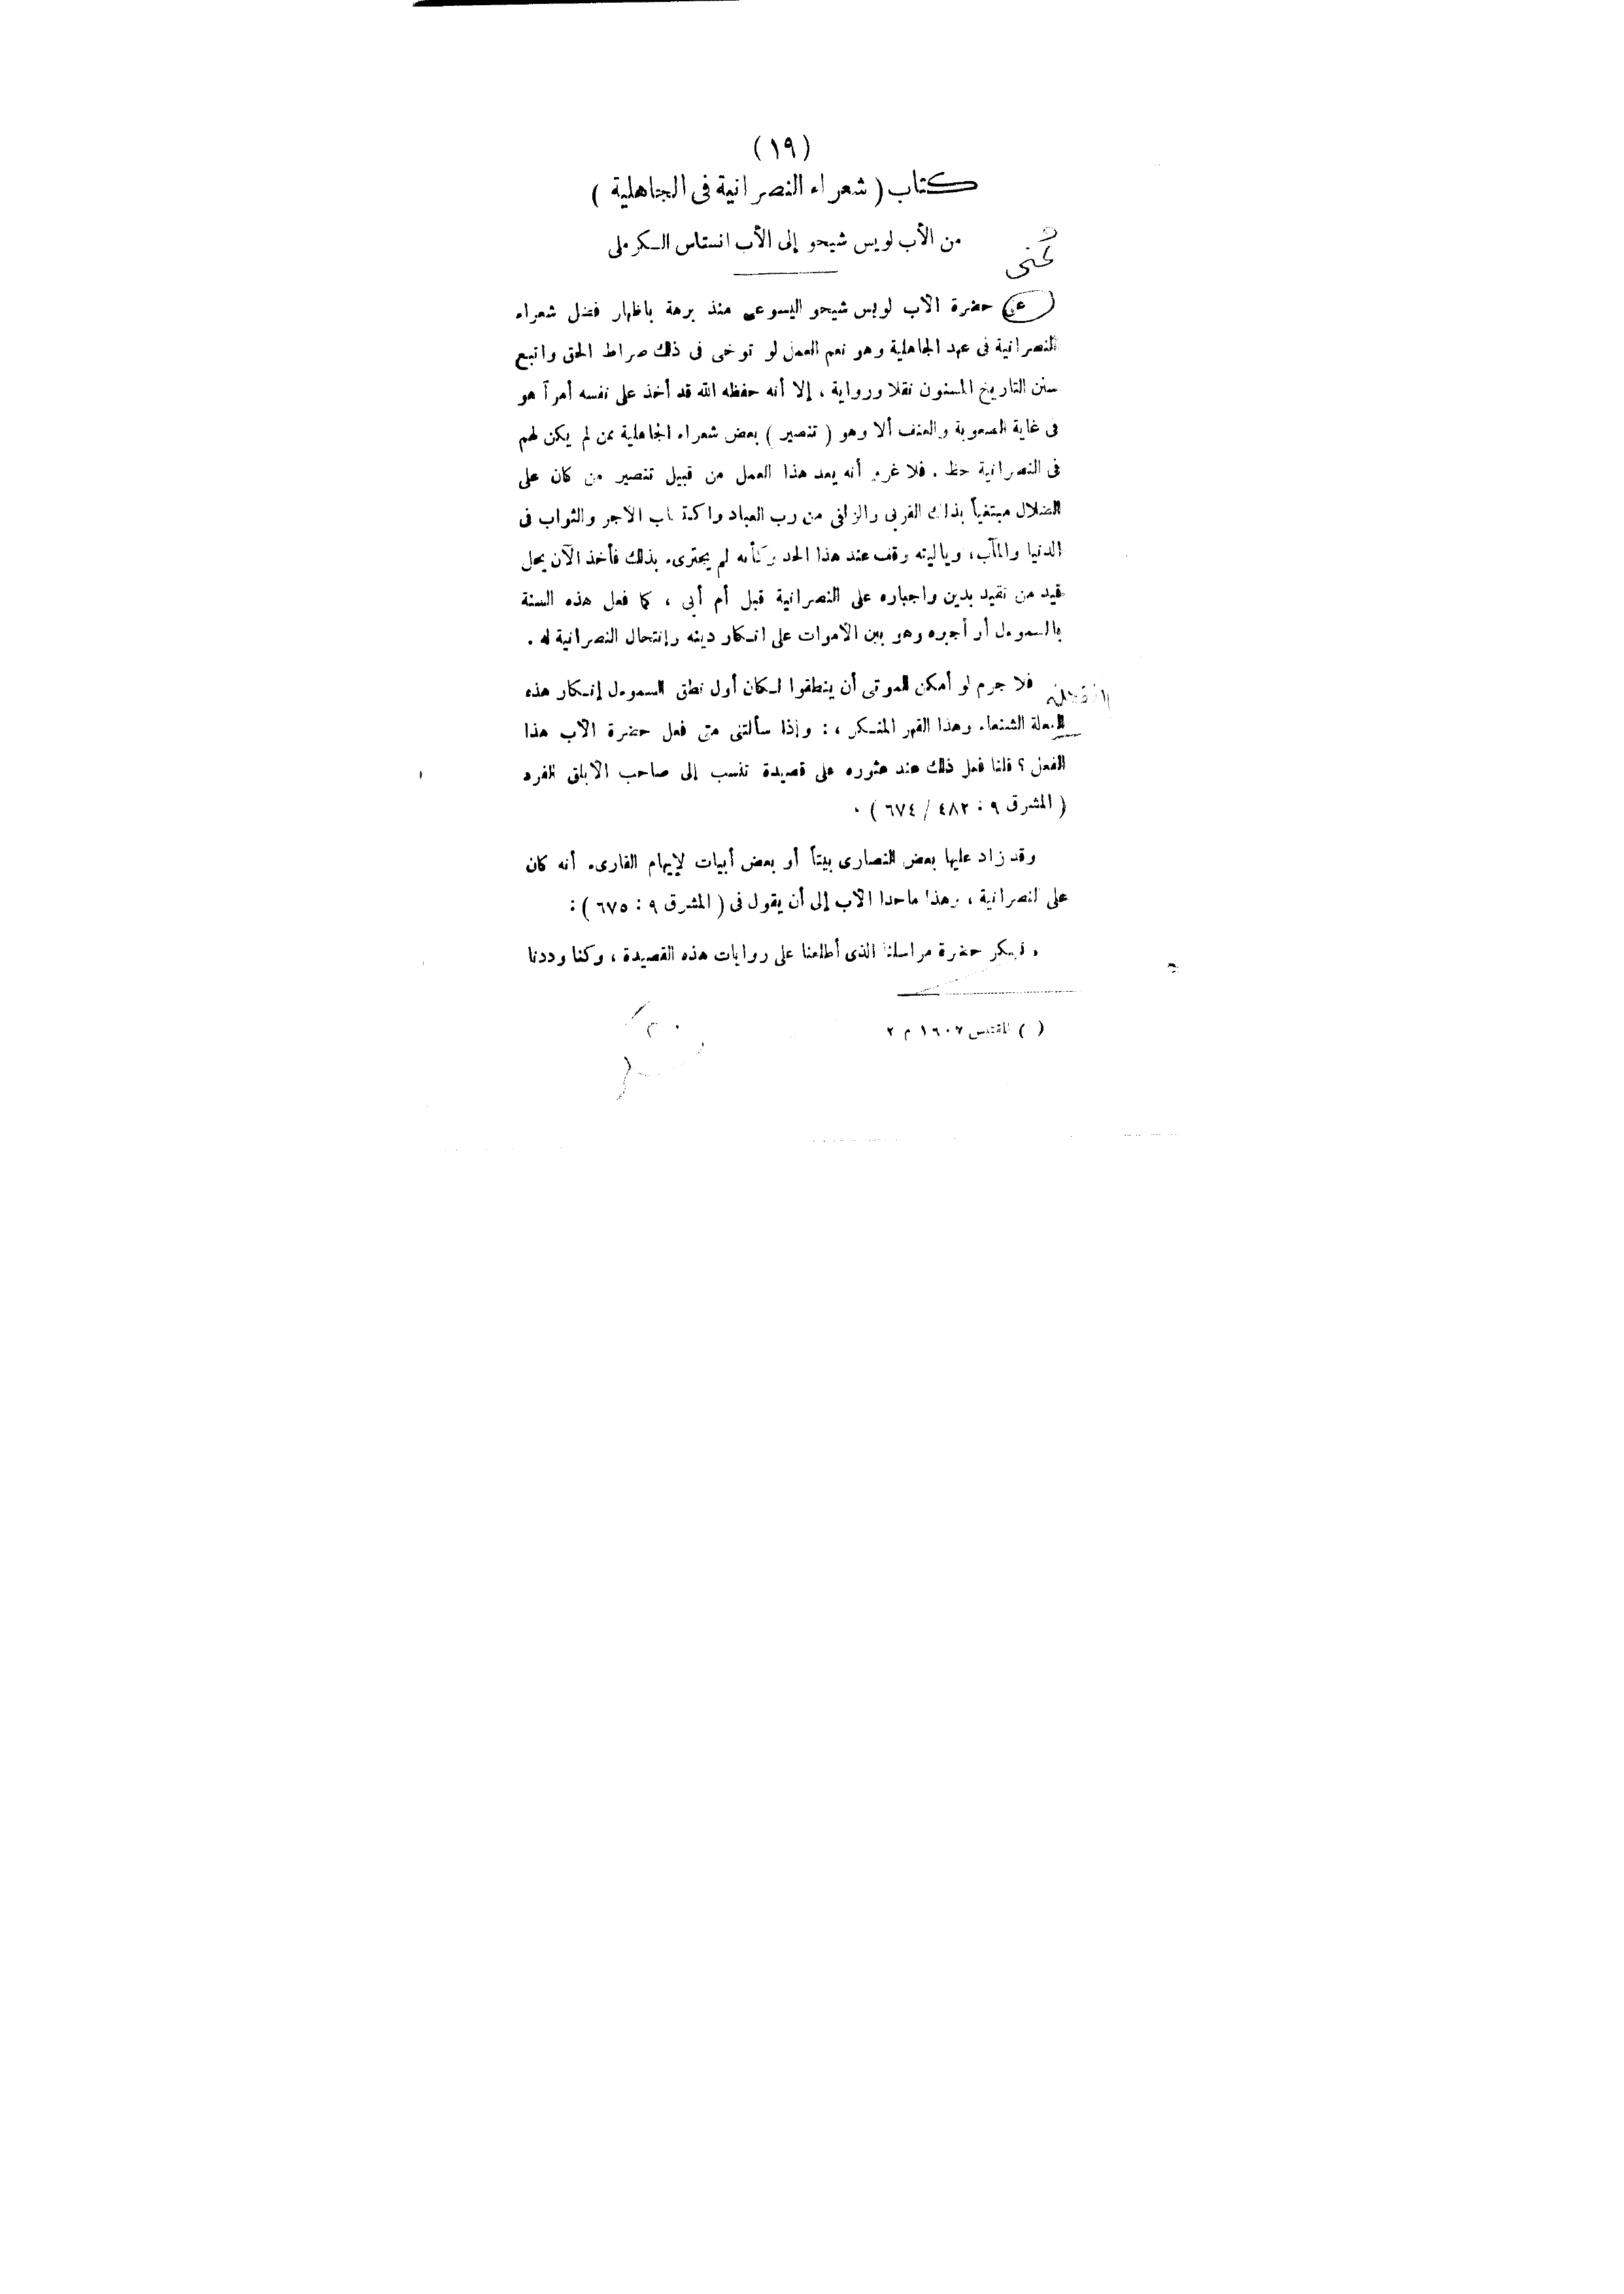 (١٩)
كتاب ( شعراء النصرانية فى الجاهلية )
من الأب لويس شيخو إلى الأب انستاس الكرملى
عنى
عنى حضرة الأب لويس شيخو اليسوعى منذ برهة باظهار فضل شعراء
النصرانية فى عهد الجاهلية وهو نعم العمل لو توخى فى ذلك صراط الحق واتبع
سنن التاريخ المسنون نقلا ورواية ، إلا أنه حفظه الله قد أخذ على نفسه أمراً هو
فى غاية الصعوبة والعنف ألا وهو ( تنصير ) بعض شعراء الجاهلية ممن لم يكن لهم
فى النصرانية حظ . فلا غرو أنه يعد هذا العمل من قبيل تنصير من كان على
الضلال مبتغياً بذلك القربى والزلفى من رب العباد واكتساب الأجر والثواب فى
الدنيا والمآب ، وياليته وقف عند هذا الحد وكأنه لم يجتزىء بذلك فأخذ الآن يحل
قيد من تقيد بدين واجباره على النصرانية قبل أم أبى ، كما فعل هذه السنة
بالسموءل أو أجبره وهو بين الأموات على انكار دينه وإنتحال النصرانية له .
فلا جرم لو أمكن الموتى أن ينطقوا لكان أول نطق السموءل إنكار هذه
الفعلة الشنعاء وهذا القهر المنكر ، : وإذا سألتنى متى فعل حضرة الأب هذا
الفعل ؟ قلنا فعل ذلك عند عثوره على قصيدة تنسب إلى صاحب الأبلق الفرد
( المشرق ٩ : ٤٨٢ / ٦٧٤ ) .
وقد زاد عليها بعض النصارى بيتاً أو بعض أبيات لإيهام القارىء أنه كان
على النصرانية ، وهذا ماحدا الأب إلى أن يقول فى ( المشرق ٩ : ٦٧٥ ) :
، فنشكر حضرة مراسلنا الذى أطلعنا على روايات هذه القصيدة ، وكنا وددنا
( ) المقتبس ١٦٠٧ م ٢